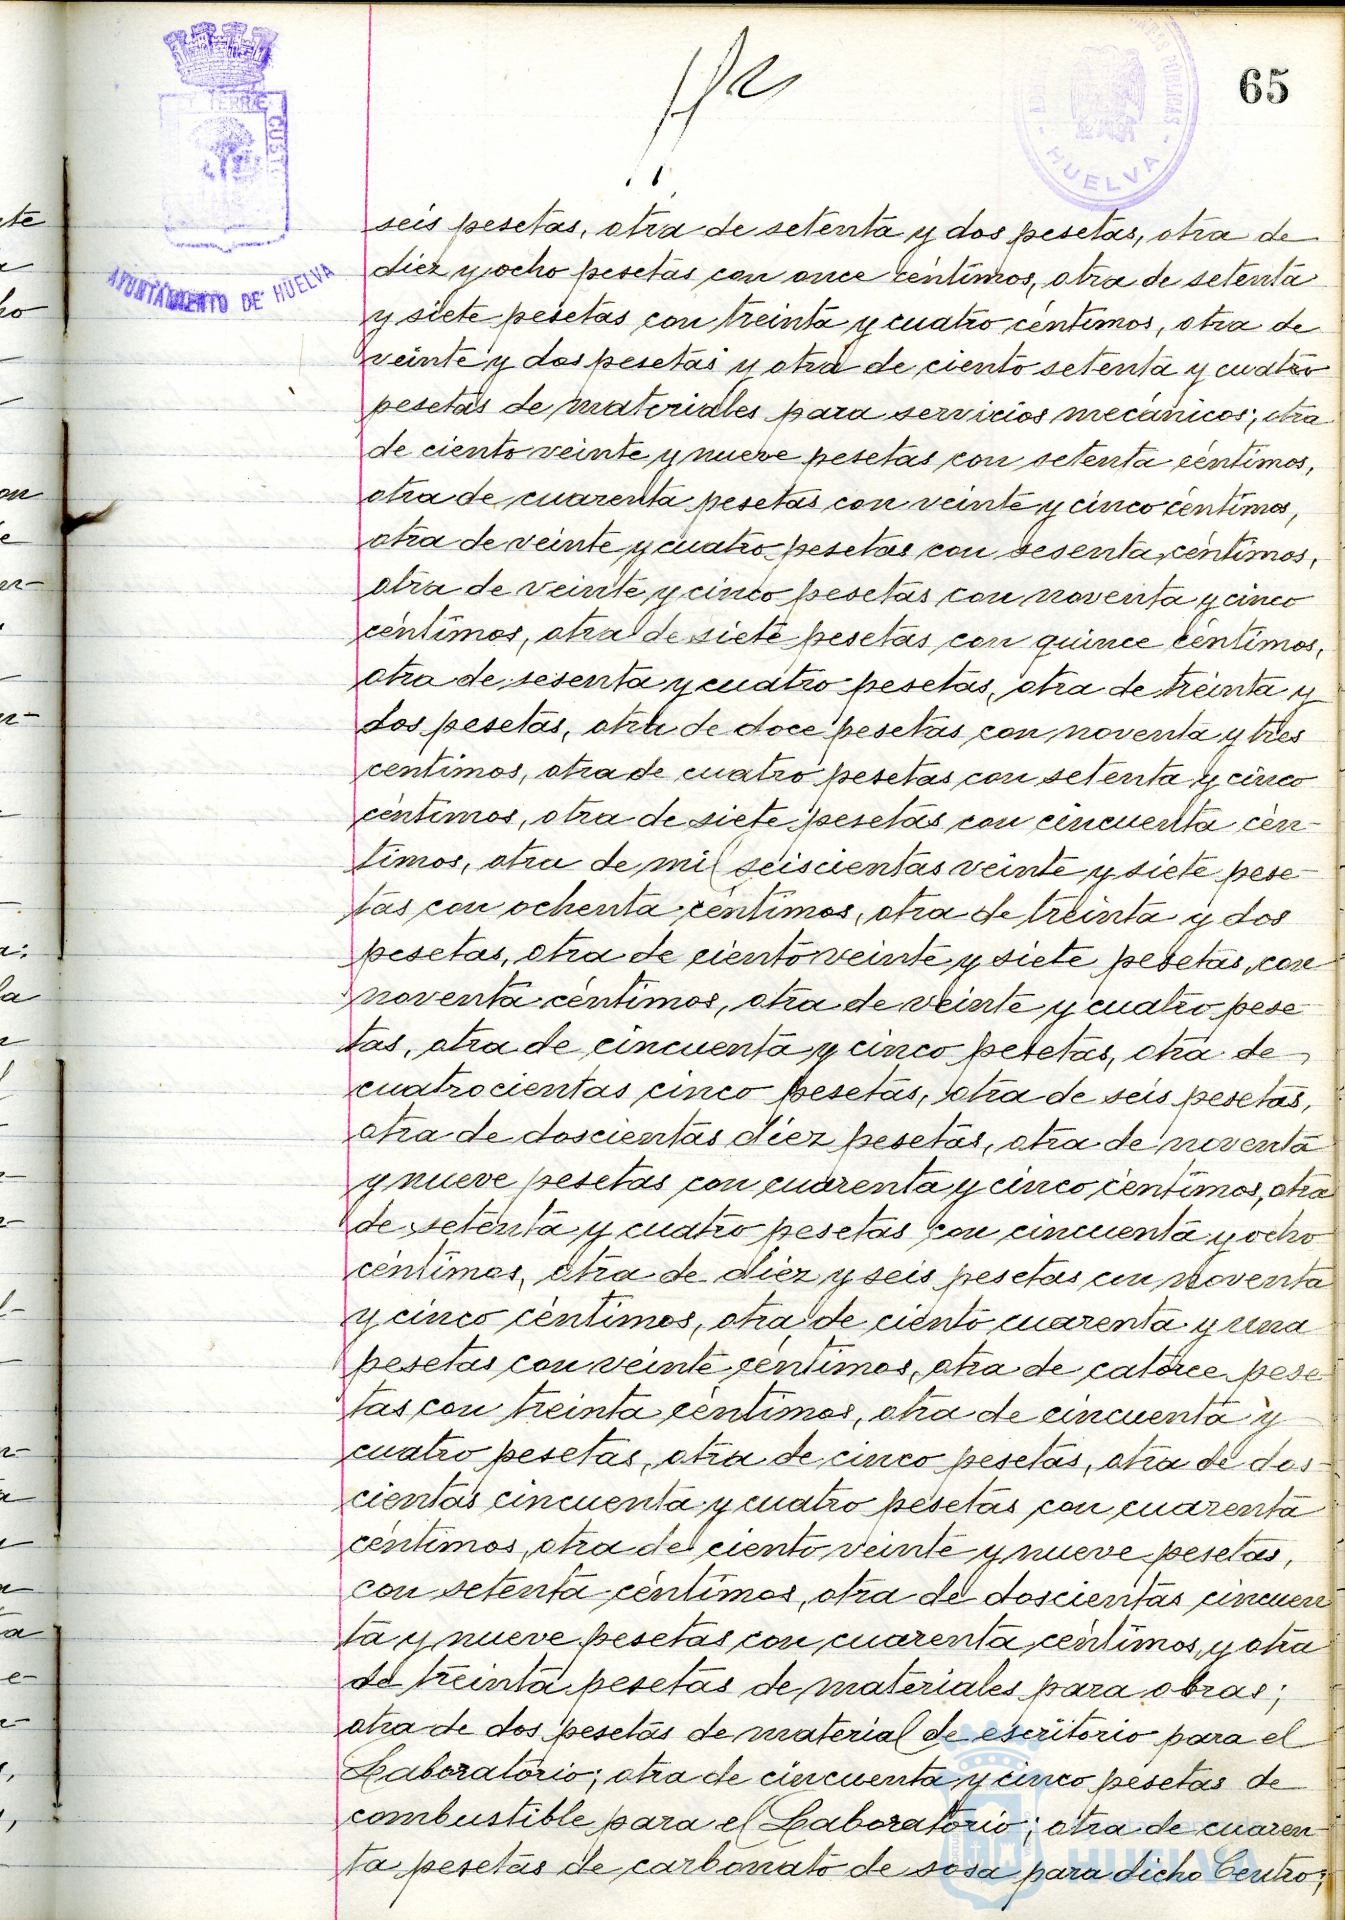 65
TERRÆ
CUSTO
AYUNTAMIENTO DE HUELVA
HUELVA
seis pesetas, otra de setenta y dos pesetas, otra de
diez y ocho pesetas con once céntimos, otra de setenta
y siete pesetas con treinta y cuatro céntimos, otra de
veinte y dos pesetas y otra de ciento setenta y cuatro
pesetas de materiales para servicios mecánicos; otra
de ciento veinte y nueve pesetas con setenta céntimos,
otra de cuarenta pesetas con veinte y cinco céntimos,
otra de veinte y cuatro pesetas con sesenta céntimos,
otra de veinte y cinco pesetas con noventa y cinco
céntimos, otra de siete pesetas con quince céntimos,
otra de sesenta y cuatro pesetas, otra de treinta y
dos pesetas, otra de doce pesetas con noventa y tres
centimos, otra de cuatro pesetas con setenta y cinco
céntimos, otra de siete pesetas con cincuenta cén-
timos, otra de mil seiscientas veinte y siete pese-
tas con ochenta céntimos, otra de treinta y dos
pesetas, otra de ciento veinte y siete pesetas con
noventa céntimos, otra de veinte y cuatro pese-
tas, otra de cincuenta y cinco pesetas, otra de
cuatrocientas cinco pesetas, otra de seis pesetas,
otra de doscientas diez pesetas, otra de noventa
y nueve pesetas con cuarenta y cinco céntimos, otra
de setenta y cuatro pesetas con cincuenta y ocho
céntimos, otra de diez y seis pesetas con noventa
y cinco céntimos, otra de ciento cuarenta y una
pesetas con veinte céntimos, otra de catorce pese-
tas con treinta céntimos, otra de cincuenta y
cuatro pesetas, otra de cinco pesetas, otra de dos-
cientas cincuenta y cuatro pesetas con cuarenta
céntimos, otra de ciento veinte y nueve pesetas,
con setenta céntimos, otra de doscientas cincuen
ta y nueve pesetas con cuarenta céntimos, y otra
de treinta pesetas de materiales para obras;
otra de dos pesetas de material de escritorio para el
Laboratorio; otra de cincuenta y cinco pesetas de
combustible para el Laboratorio; otra de cuaren-
ta pesetas de carbonato de sosa para dicho Centro;
HUELVA